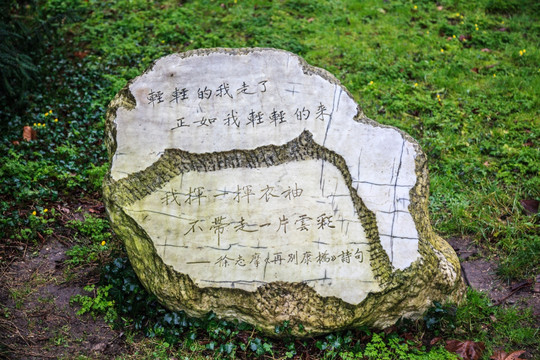 輕輕的我走了
正如我輕輕的來
我揮一揮衣袖
不帶走一片雲彩
——徐志摩《再別康橋》詩句